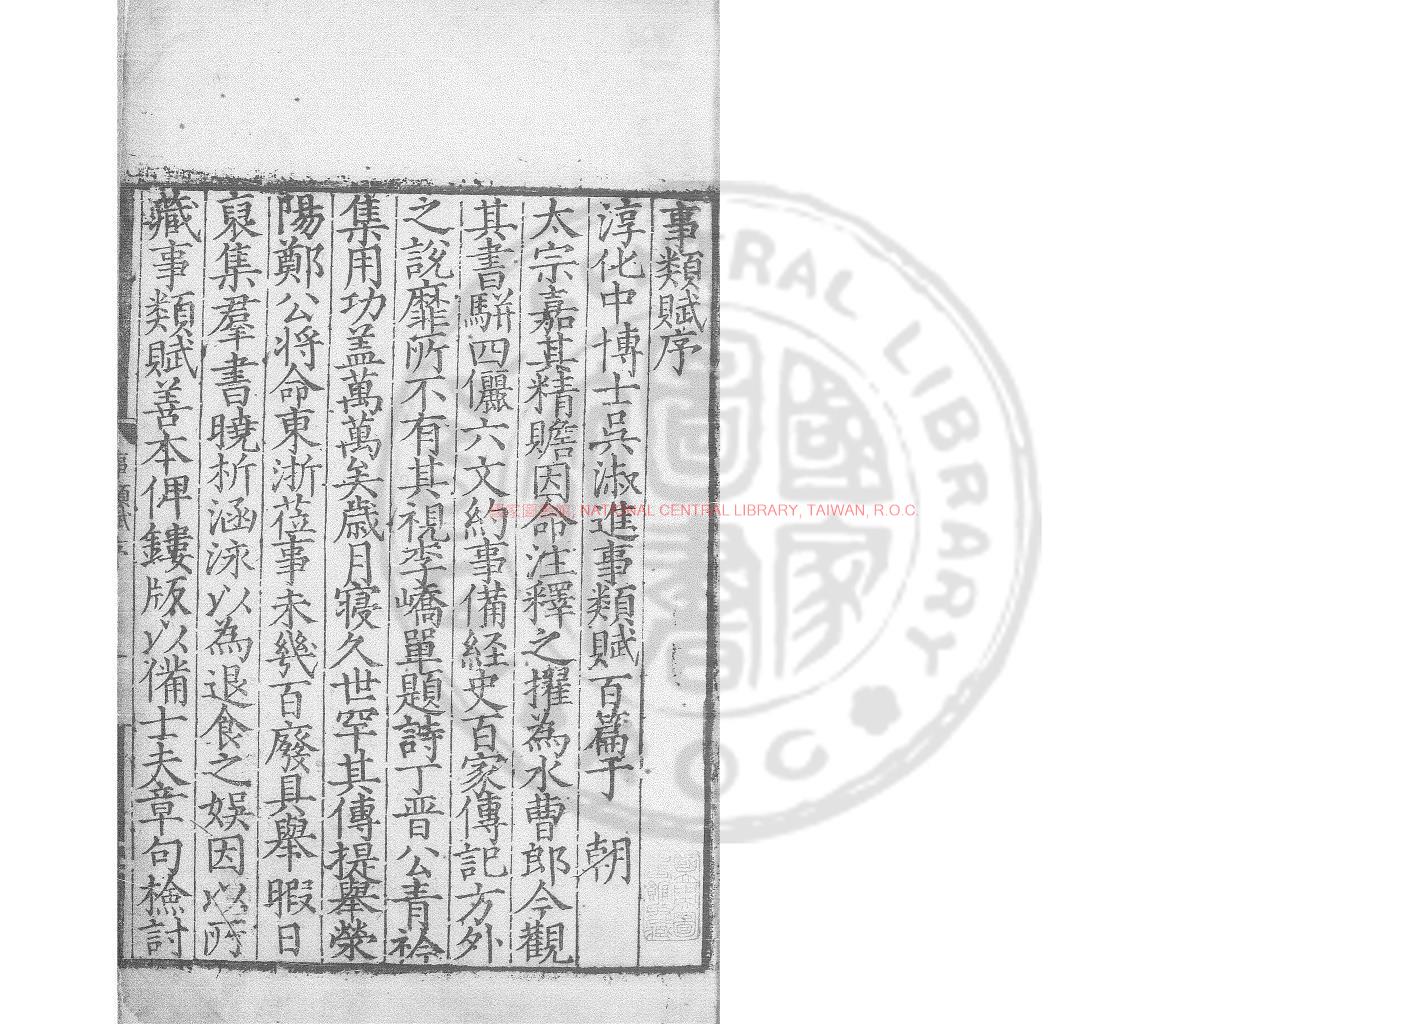 事類賦序
淳化中博士吳淑進事類賦百篇于　朝
太宗嘉其精贍因命注釋之擢為水曹郎今觀
其書駢四儷六文約事備經史百家傳記方外
之說靡所不有其視李嶠單題詩丁晋公青衿
集用功盖萬萬矣歲月寖久世罕其傳提舉滎
陽鄭公将命東浙莅事未幾百廢具舉暇日
裒集羣書曉析涵泳以為退食之娯因以所
藏事類賦善本俾鏤版以備士夫章句檢討
國家圖書館, NATIONAL CENTRAL LIBRARY, TAIWAN, R.O.C